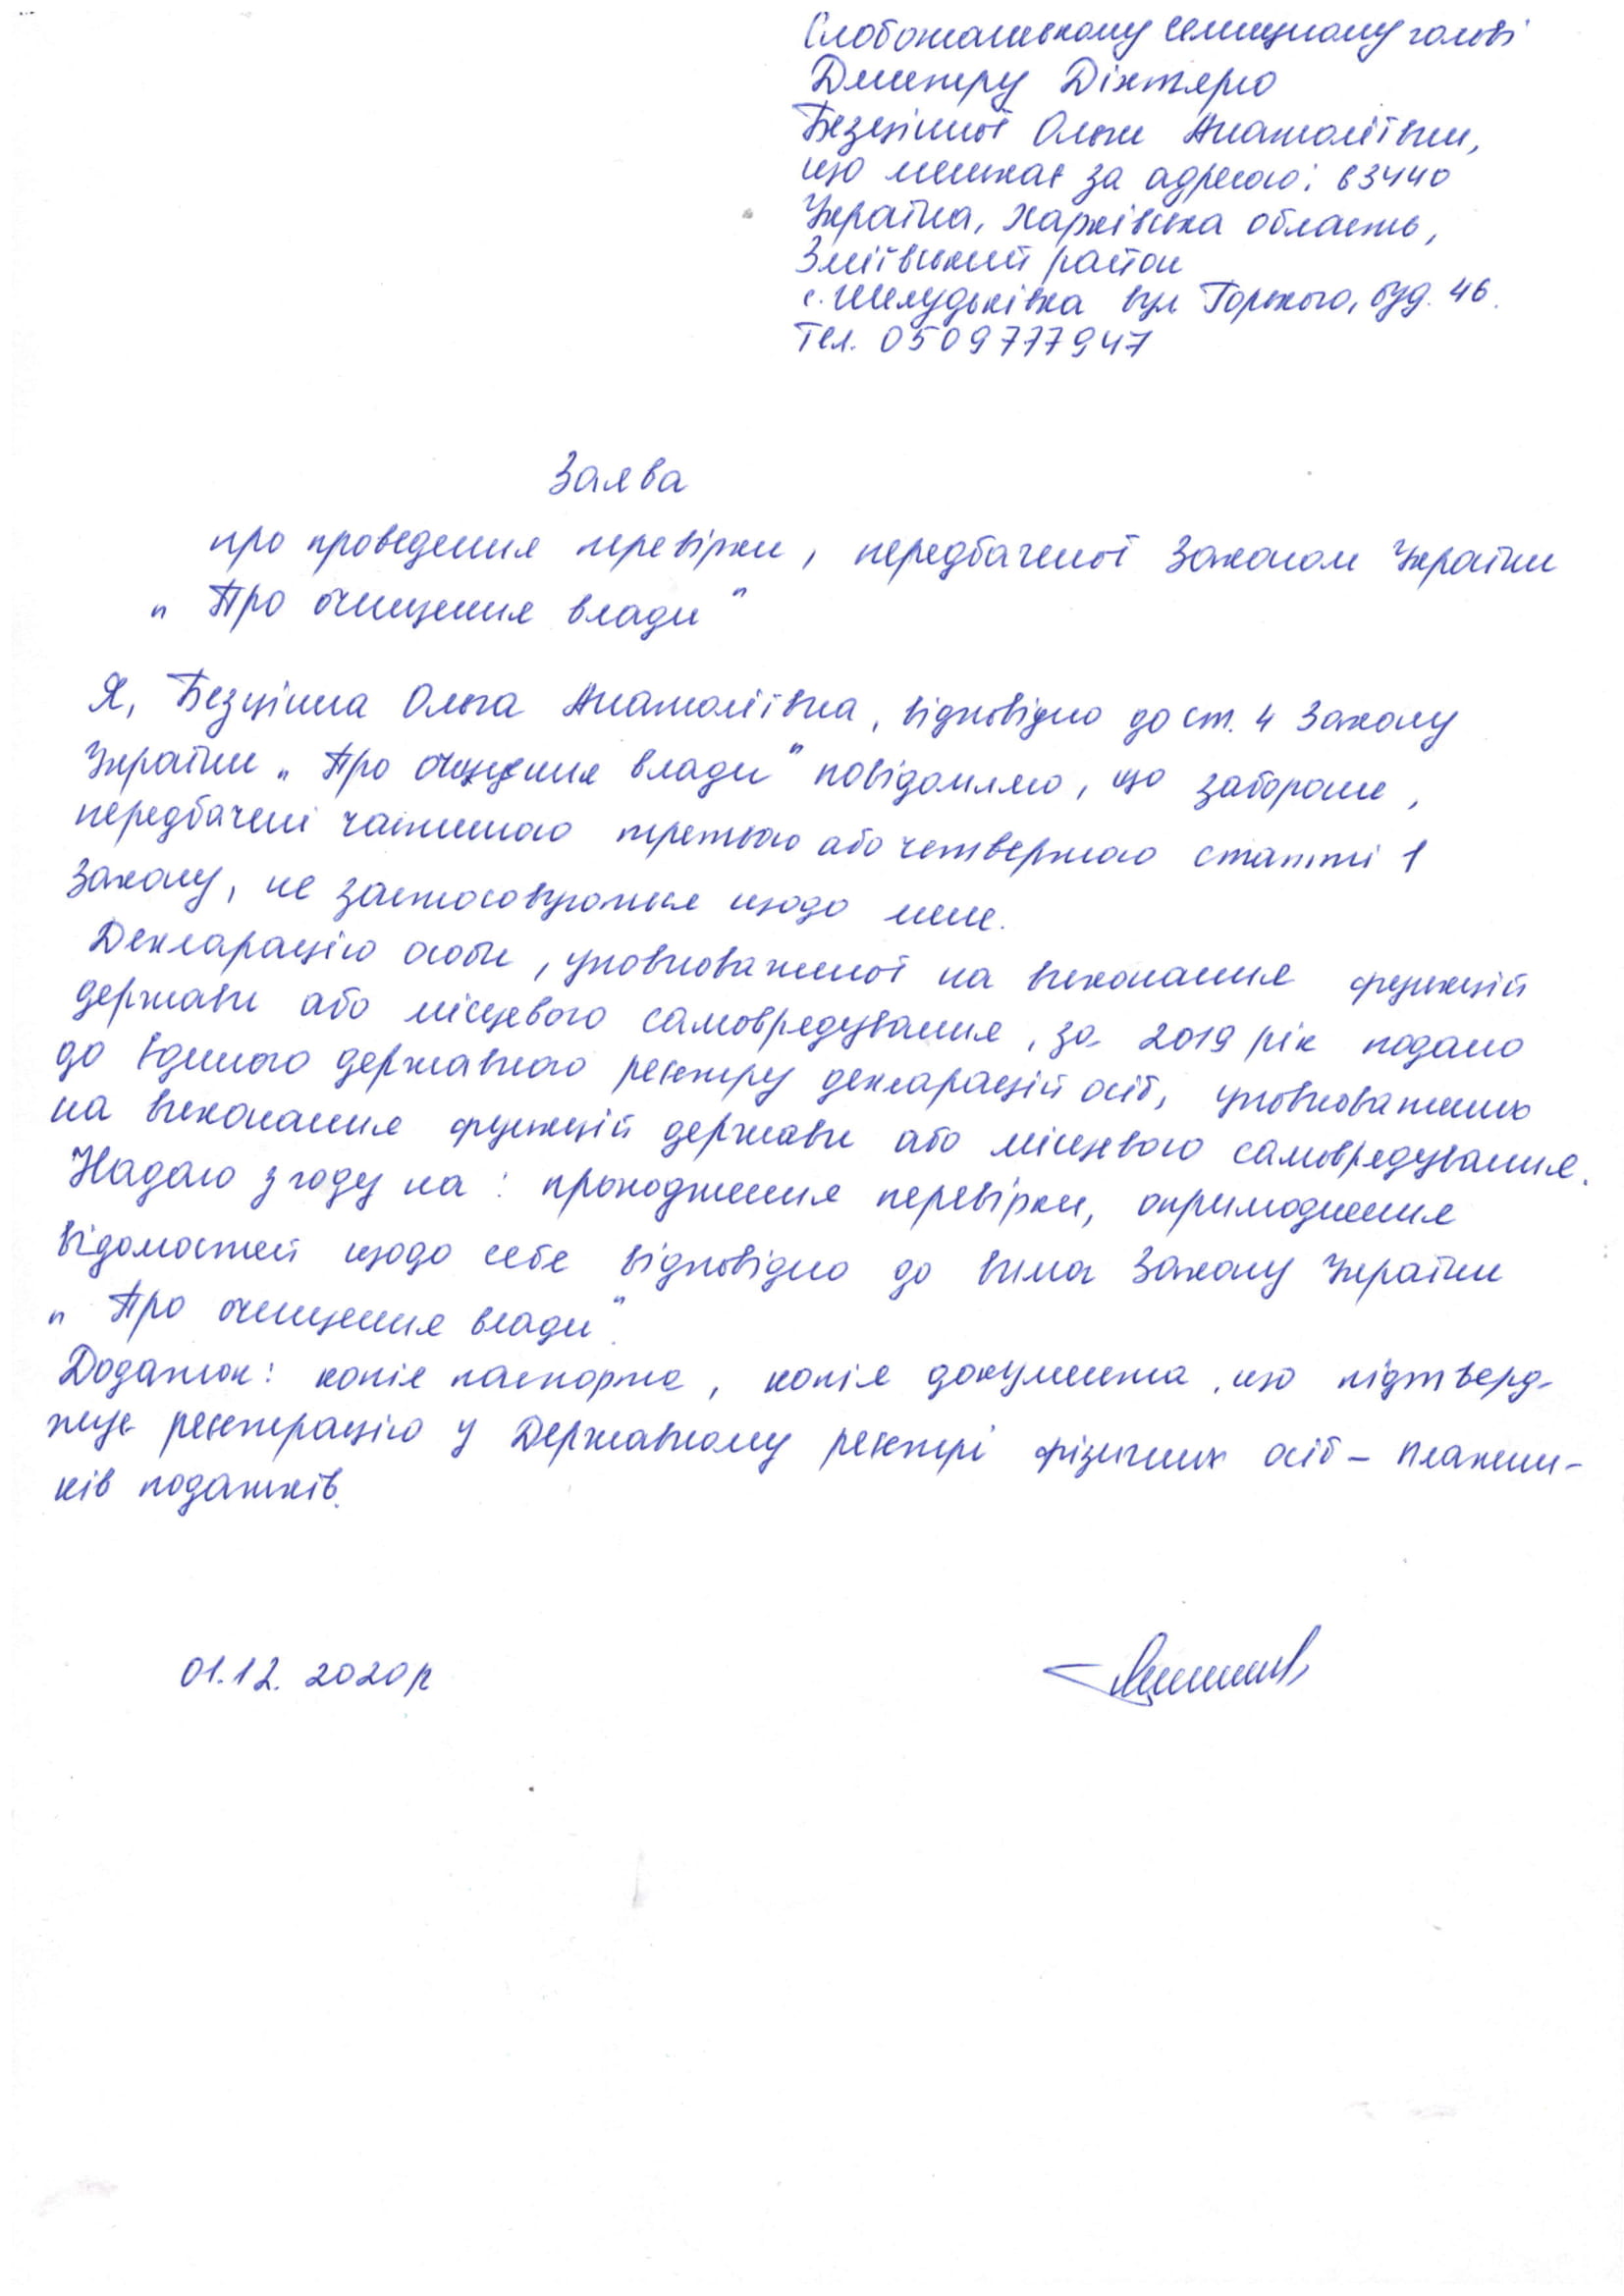 Слобожанському селищному голові
Дмитру Діхтярю
Безцінної Ольги Анатоліївни,
що мешкає за адресою: 63440
Україна, Харківська область,
Зміївський район
с. Шелудьківка вул Горького, буд. 46.
Тел. 0509777947
Заява
про проведення перевірки, передбаченої Законом України
„Про очищення влади"
Я, Безцінна Ольга Анатоліївна, відповідно до ст. 4 Закону
України „Про очищення влади" повідомляю, що заборони,
передбачені частиною третьою або четвертою статті 1
Закону, не застосовуються щодо мене.
Декларацію особи, уповноваженої на виконання функцій
держави або місцевого самоврядування, за 2019 рік подано
до Єдиного державного реєстру декларацій осіб, уповноважених
на виконання функцій держави або місцевого самоврядування.
Надаю згоду на: проходження перевірки, оприлюднення
відомостей щодо себе відповідно до вимог Закону України
„Про очищення влади".
Додаток: копія паспорта, копія документа, що підтверд-
жує реєстрацію у Державному реєстрі фізичних осіб – платни-
ків податків.
01.12.2020р